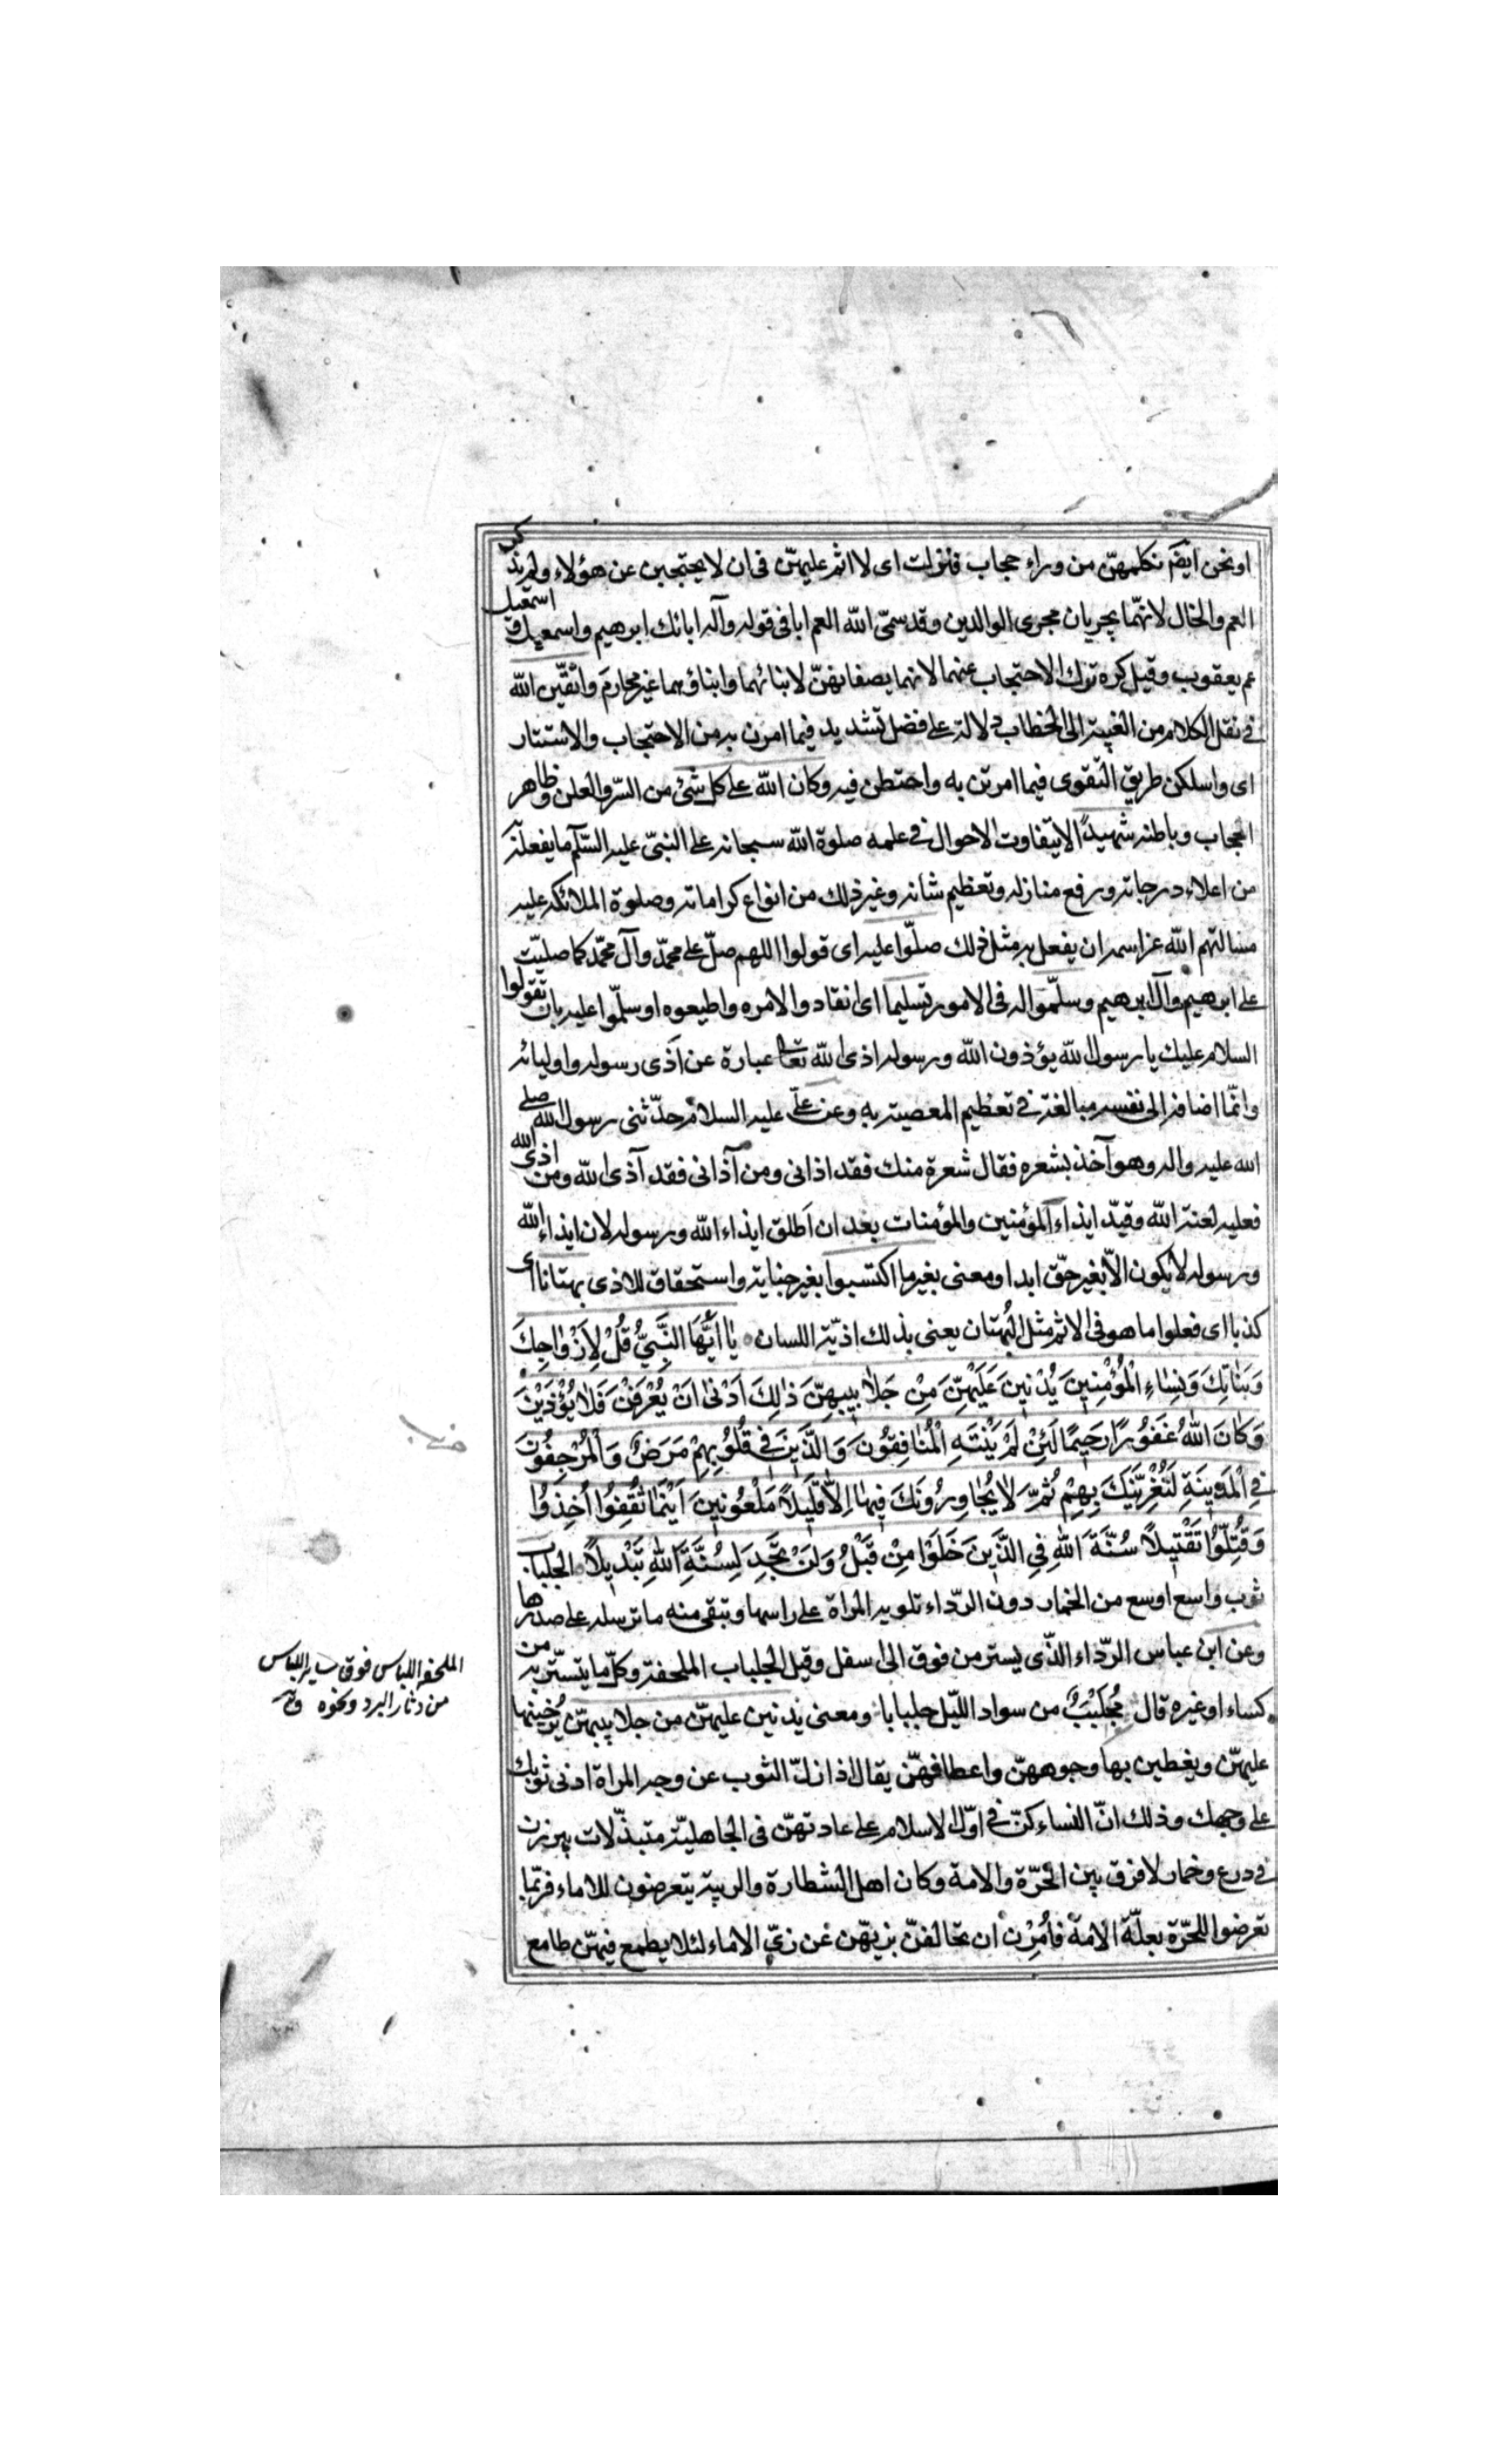 او نحن ايضا نكلمهنّ من وراء حجاب فنزلت اى لا اثم عليهنّ فى ان لا يحتجبن عن هؤلاء ولم يذكر
العم والخال لانهما يجريان مجرى الوالدين وقد سمّى الله العم ابا فى قوله وآله ابائك ابرهيم واسمعيل واسمعيل
عم يعقوب وقيل كره ترك الاحتجاب عنهما لانهما يصفانهنّ لابنائهما وابناؤهما غير محارم واتّقين الله
فى نقل الكلام من الغيبة الى الخطاب دلالة على فضل تشديد فيما امرن به من الاحتجاب والاستتار
اى واسلكن طريق التّقوى فيما امرتن به واحتطن فيه وكان الله على كل شئ من السّر والعلن وظاهر
الحجاب وباطنه شهيدًا لا يتفاوت الاحوال فى علمه صلوة الله سبحانه على النبىّ عليه السّلم ما يفعله به
من اعلاء درجاته ورفع منازله وتعظيم شانه وغير ذلك من انواع كراماته وصلوة الملائكه عليه
مسالتهم الله عز اسمه ان يفعل به مثل ذلك صلّوا عليه اى قولوا اللهم صلّ على محمّد وآل محمّد كما صليّت
على ابرهيم وآل ابرهيم وسلّموا له فى الامور تسليما اى انقادوا لامره واطيعوه او سلّموا عليه بان تقولوا
السلام عليك يا رسول الله يؤذون الله ورسوله اذى الله تعالى عبارة عن اَذى رسوله واوليائه
وانّما اضافه الى نفسه مبالغة فى تعظيم المعصية به وعن علىّ عليه السلام حدّثنى رسول الله صلى
الله عليه واله وهو آخذ بشعره فقال شعرة منك فقد اذانى ومن آذانى فقد آذى الله ومن اذى الله
فعليه لعنة الله وقيّد ايذاء المؤمنين والمؤمنات بعد ان اَطلق ايذاء الله ورسوله لان ايذاء الله
ورسوله لا يكون الّا بغير حّق ابدا ومعنى بغير ما اكتسبوا بغير جناية واستحقاق للاذى بهتانا اى
كذبا اى فعلوا ما هو فى الاثم مثل البُهتان يعنى بذلك اذيّة اللسان يٰا اَيُّهَا النَّبِىُّ قُلْ لِاَزْوٰاجِكَ
وَبَنٰاتِكَ وَنِسٰاءِ الْمُؤْمِنِينَ يُدْنِينَ عَلَيْهِنَّ مِنْ جَلٰابِيبِهِنَّ ذٰلِكَ اَدْنٰى اَنْ يُعْرَفْنَ فَلٰا يُؤْذَيْنَ
وَكٰانَ اللّٰهُ غَفُورًا رَحِيمًا لَئِنْ لَمْ يَنْتَهِ الْمُنٰافِقُونَ وَالَّذِينَ فِى قُلُوبِهِمْ مَرَضٌ وَالْمُرْجِفُونَ
فِى الْمَدِينَةِ لَنُغْرِيَنَّكَ بِهِمْ ثُمَّ لٰا يُجٰاوِرُونَكَ فِيهٰا اِلّٰا قَلِيلًا مَلْعُونِينَ اَيْنَمٰا ثُقِفُوا اُخِذُوا
وَقُتِّلُوا تَقْتِيلًا سُنَّةَ اللّٰهِ فِى الَّذِينَ خَلَوْا مِنْ قَبْلُ وَلَنْ تَجِدَ لِسُنَّةِ اللّٰهِ تَبْدِيلًا الجلباب
ثوب واسع اوسع من الخمار دون الرّداء تلويه المراة على راسها وتبقى منه ما ترسله على صدرها
وعن ابن عباس الرّداء الّذى يستر من فوق الى اسفل وقيل الجلباب الملحفة وكلّ ما يتستّر به من
كساء او غيره قال مُجَلْبَبٌ من سواد اللّيل جلبابا ومعنى يدنين عليهنّ من جلابيبهنّ يُرخينها
عليهنّ ويغطين بها وجوههنّ واعطافهنّ يقال اذا زلّ الثوب عن وجه المراة ادنى ثوبك
على وجهك وذلك انّ النساء كنّ فى اوّل الاسلام على عادتهنّ فى الجاهليّة متبذّلات يبرزن
فى درع وخمار لا فرق بين الحُرّة والامة وكان اهل الشطارة والريبة يتعرضون للاماء فربّما
تعرضوا للحرّة بعلّة الامة فاُمِرْن ان تخالفنّ بزيّهن عن زىّ الاماء لئلا يطمع فيهنّ طامع
الملحفة اللباس فوق ساير اللباس
من دثار البرد ونحوه ق